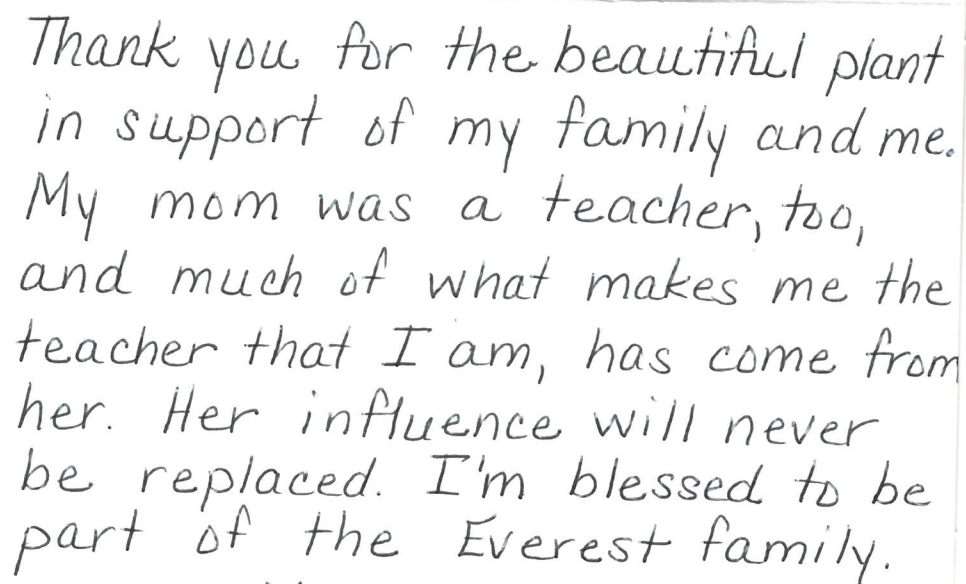 Thank you for the beautiful plant
in support of my family and me.
My mom was a teacher, too,
and much of what makes me the
teacher that I am, has come from
her. Her influence will never
be replaced. I'm blessed to be
part of the Everest family.